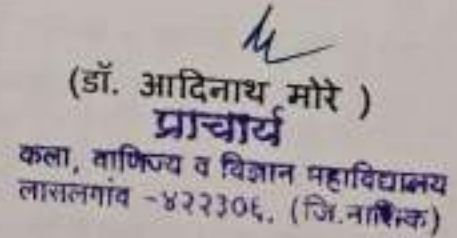 (डॉ. आदिनाथ मोरे )
प्राचार्य
कला, वाणिज्य व विज्ञान महाविद्यालय
लासलगांव -४२२३०६. (जि.नाशिक)